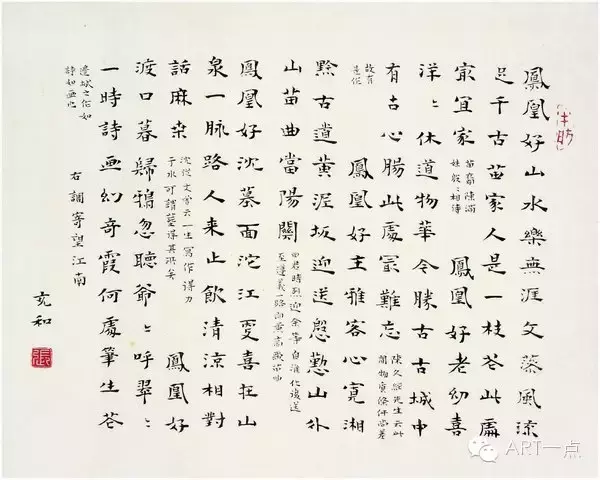 鳳凰好山水樂無涯文藻風流
足千古苗家人是一枝花此處
最宜家 苗裔陳滿 鳳凰好老幼喜
洋〻休道物華今勝古古城中
有古心腸此處最難忘 陳久經先生云此間物質條件尚差
故有是作
鳳凰好主雅客心寬湘
黔古道黃泥坂迎送殷懃山外
山苗曲當陽關 田君時烈迎余等自 化復送至遵義一路
鳳凰好沈墓面沱江更喜在山
泉一脈路人來止飲清涼相對
話麻桑 沈從文嘗云一生寫作得力于水可謂墓得其所矣 鳳凰好
渡口暮歸鴉忽聽爺〻呼翠〻
一時詩畫幻奇霞何處筆生花
邊城之作如詩如畫也
右調寄望江南
充和
張
ART一点